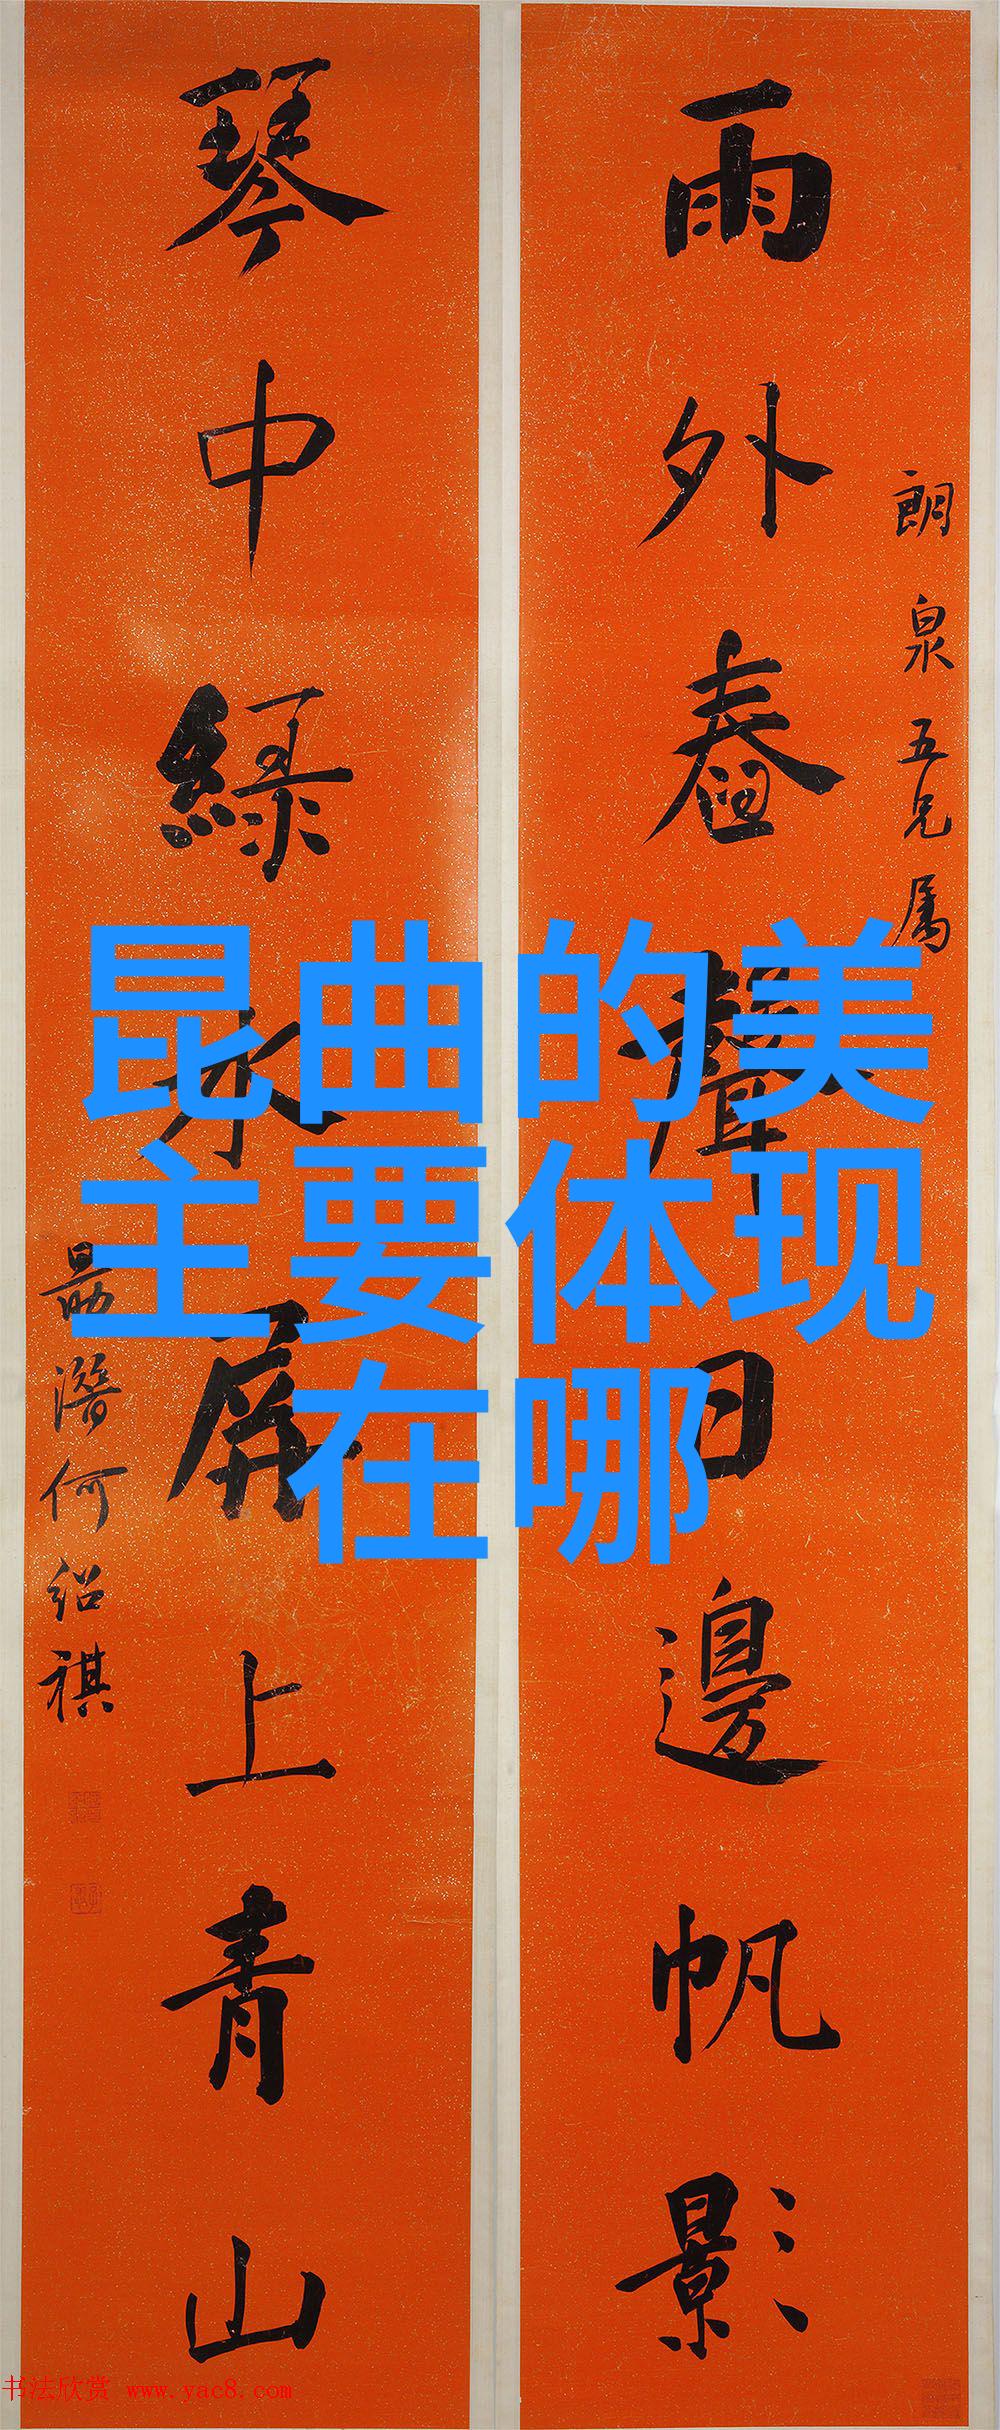 朗泉五兄属
雨外舂聲日邊帆影
琴中綠水屏上青山
勗潛何紹祺
昆曲的美
主要体现
在哪
书法欣赏 www.yac8.com